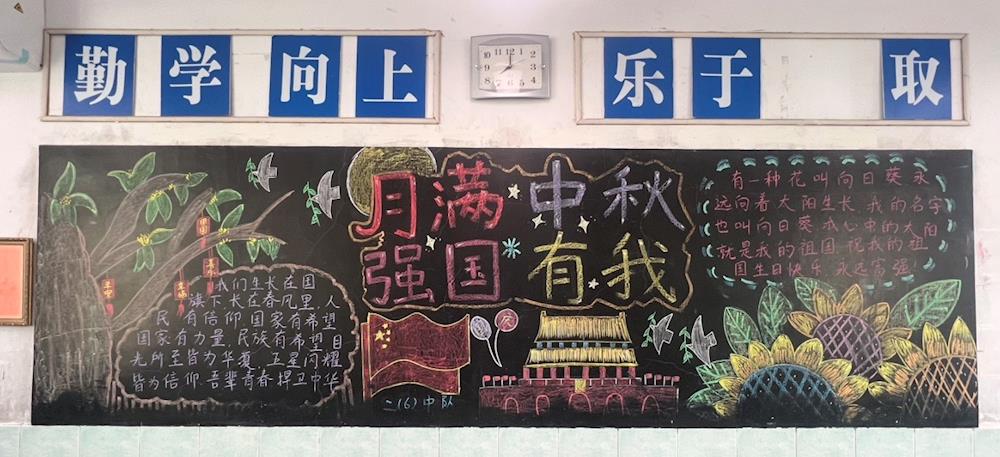 勤学向上
乐于 取
月满 中秋
强国 有我
我们生长在国
旗下,长在春风里,人
民有信仰,国家有希望
国家有力量,民族有希望,目
光所至皆为华夏,五星闪耀
皆为信仰,吾辈青春,捍卫中华
二(6)中队
有一种花叫向日葵,永
远向着太阳生长,我的名字
也叫向日葵,我心中的太阳
就是我的祖国,祝我的祖
国生日快乐,永远富强!